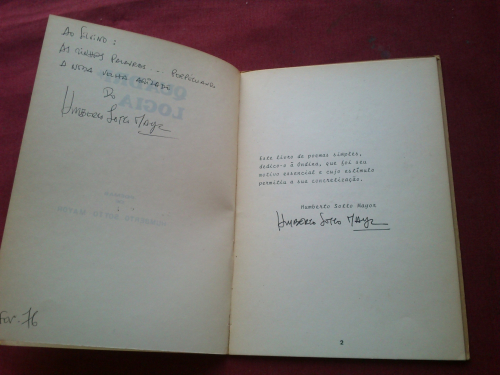 AO
AS PALAVRAS ... PERPETUANDO
A NOSSA VELHA AMIZADE
DO
HUMBERTO SOTTO MAYOR
Fev. 76
Este livro de poemas simples,
dedico-o à Ondina, que foi seu
motivo essencial e cujo estímulo
permitiu a sua concretização.
Humberto Sotto Mayor
HUMBERTO SOTTO MAYOR
2